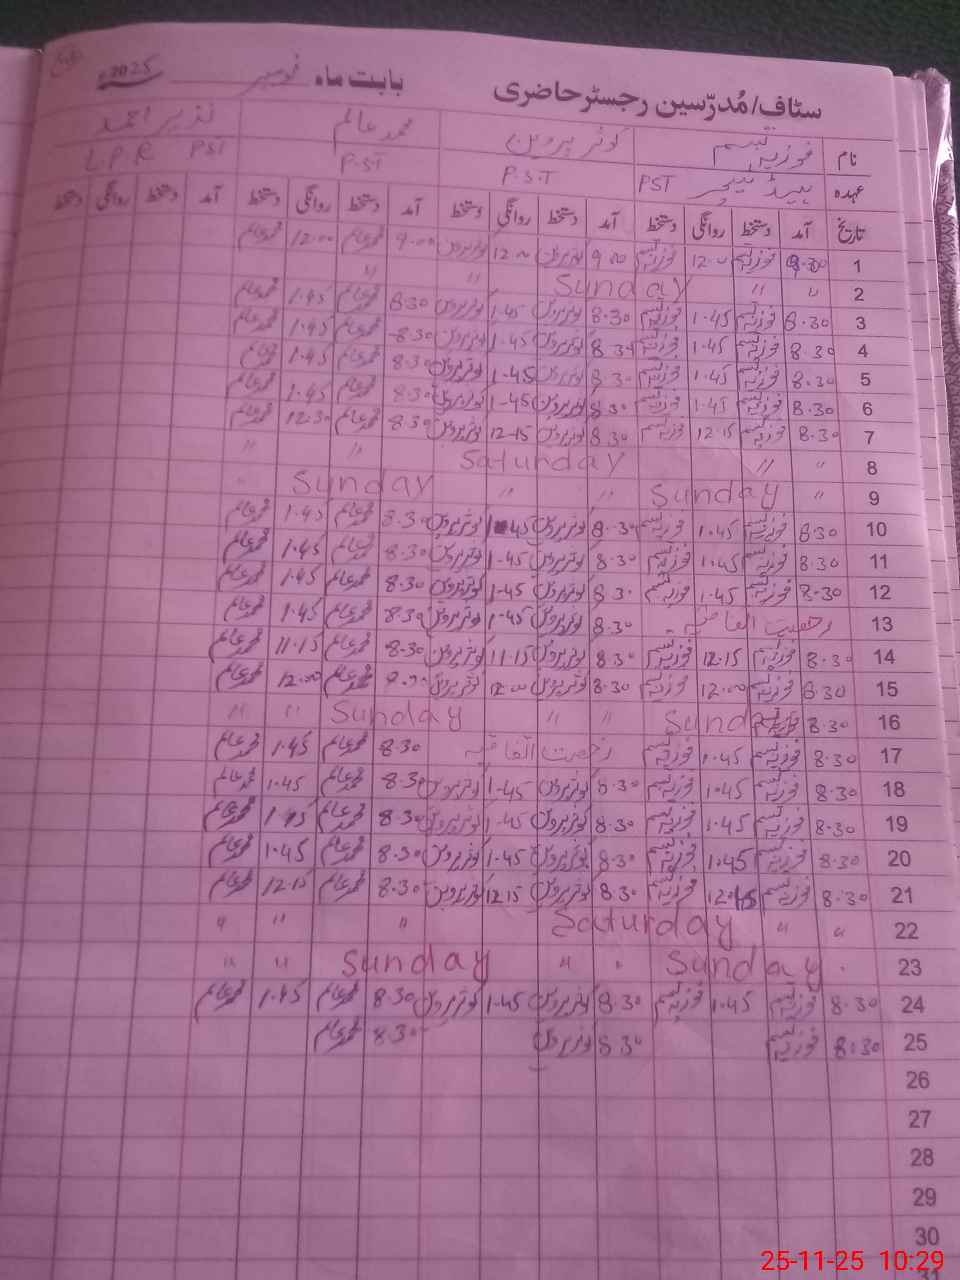 سٹاف/مُدرّسین رجسٹر حاضری بابت ماہ نومبر 2025ء
نام فوزیہ تبسم کوثر پروین محمد عالم نذیر احمد
عہدہ ہیڈ ٹیچر PST P.S.T P.S.T PST L.P.R
تاریخ آمد دستخط روانگی دستخط آمد دستخط روانگی دستخط آمد دستخط روانگی دستخط آمد دستخط روانگی دستخط
1 9.30 فوزیہ تبسم 12.00 فوزیہ تبسم 9.00 کوثر پروین 12.00 کوثر پروین 9.00 محمد عالم 12.00 محمد عالم
2 " " Sunday " "
3 8.30 فوزیہ تبسم 1.45 فوزیہ تبسم 8.30 کوثر پروین 1.45 کوثر پروین 8.30 محمد عالم 1.45 محمد عالم
4 8.30 فوزیہ تبسم 1.45 فوزیہ تبسم 8.30 کوثر پروین 1.45 کوثر پروین 8.30 محمد عالم 1.45 محمد عالم
5 8.30 فوزیہ تبسم 1.45 فوزیہ تبسم 8.30 کوثر پروین 1.45 کوثر پروین 8.30 محمد عالم 1.45 محمد عالم
6 8.30 فوزیہ تبسم 1.45 فوزیہ تبسم 8.30 کوثر پروین 1.45 کوثر پروین 8.30 محمد عالم 1.45 محمد عالم
7 8.30 فوزیہ تبسم 12.15 فوزیہ تبسم 8.30 کوثر پروین 12.15 کوثر پروین 8.30 محمد عالم 12.30 محمد عالم
8 " " Saturday " "
9 " Sunday " " Sunday "
10 8.30 فوزیہ تبسم 1.45 فوزیہ تبسم 8.30 کوثر پروین 1.45 کوثر پروین 8.30 محمد عالم 1.45 محمد عالم
11 8.30 فوزیہ تبسم 1.45 فوزیہ تبسم 8.30 کوثر پروین 1.45 کوثر پروین 8.30 محمد عالم 1.45 محمد عالم
12 8.30 فوزیہ تبسم 1.45 فوزیہ تبسم 8.30 کوثر پروین 1.45 کوثر پروین 8.30 محمد عالم 1.45 محمد عالم
13 رخصت اتفاقیہ 8.30 کوثر پروین 1.45 کوثر پروین 8.30 محمد عالم 1.45 محمد عالم
14 8.30 فوزیہ تبسم 12.15 فوزیہ تبسم 8.30 کوثر پروین 11.15 کوثر پروین 8.30 محمد عالم 11.15 محمد عالم
15 8.30 فوزیہ تبسم 12.00 فوزیہ تبسم 8.30 کوثر پروین 12.00 کوثر پروین 9.00 محمد عالم 12.00 محمد عالم
16 8.30 Sunday " " Sunday " "
17 8.30 فوزیہ تبسم 1.45 فوزیہ تبسم رخصت اتفاقیہ 8.30 محمد عالم 1.45 محمد عالم
18 8.30 فوزیہ تبسم 1.45 فوزیہ تبسم 8.30 کوثر پروین 1.45 کوثر پروین 8.30 محمد عالم 1.45 محمد عالم
19 8.30 فوزیہ تبسم 1.45 فوزیہ تبسم 8.30 کوثر پروین 1.45 کوثر پروین 8.30 محمد عالم 1.45 محمد عالم
20 8.30 فوزیہ تبسم 1.45 فوزیہ تبسم 8.30 کوثر پروین 1.45 کوثر پروین 8.30 محمد عالم 1.45 محمد عالم
21 8.30 فوزیہ تبسم 12.15 فوزیہ تبسم 8.30 کوثر پروین 12.15 کوثر پروین 8.30 محمد عالم 12.15 محمد عالم
22 " " Saturday " " "
23 Sunday " " Sunday " "
24 8.30 فوزیہ تبسم 1.45 فوزیہ تبسم 8.30 کوثر پروین 1.45 کوثر پروین 8.30 محمد عالم 1.45 محمد عالم
25 8.30 فوزیہ تبسم 8.30 کوثر پروین 8.30 محمد عالم
26
27
28
29
30
31
25-11-25 10:29